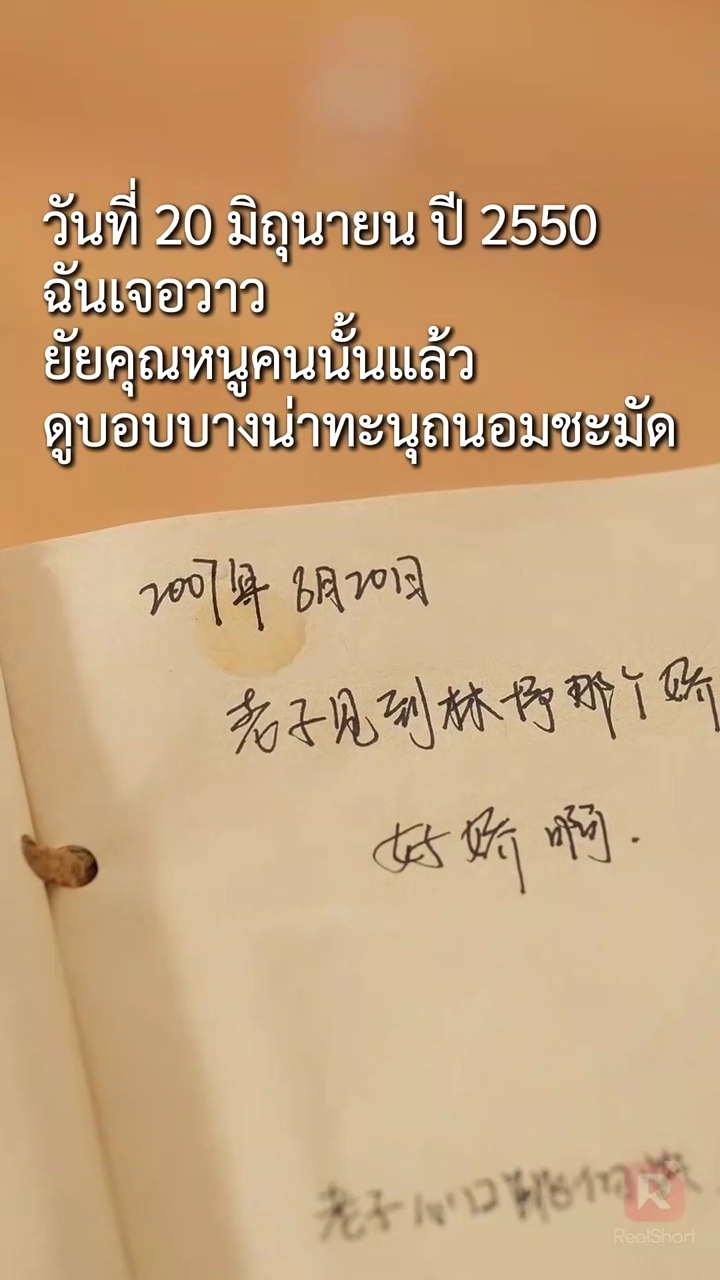 วันที่ 20 มิถุนายน ปี 2550
ฉันเจอวาว
ยัยคุณหนูคนนั้นแล้ว
ดูบอบบางน่าทะนุถนอมชะมัด
2007年 6月20日
老子见到林 那个娇
好娇啊.
老子心口跳
ReelShort